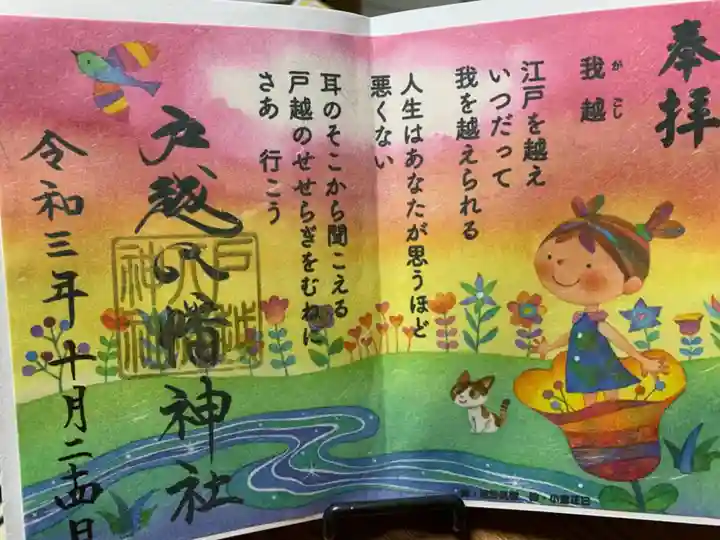 奉拝
我越
がごし
江戸を越え
いつだって
我を越えられる
人生はあなたが思うほど
悪くない
耳のそこから聞こえる
戸越のせせらぎをむねに
さあ 行こう
戸越八幡神社
戸越
八幡
神社
令和三年十月二十四日